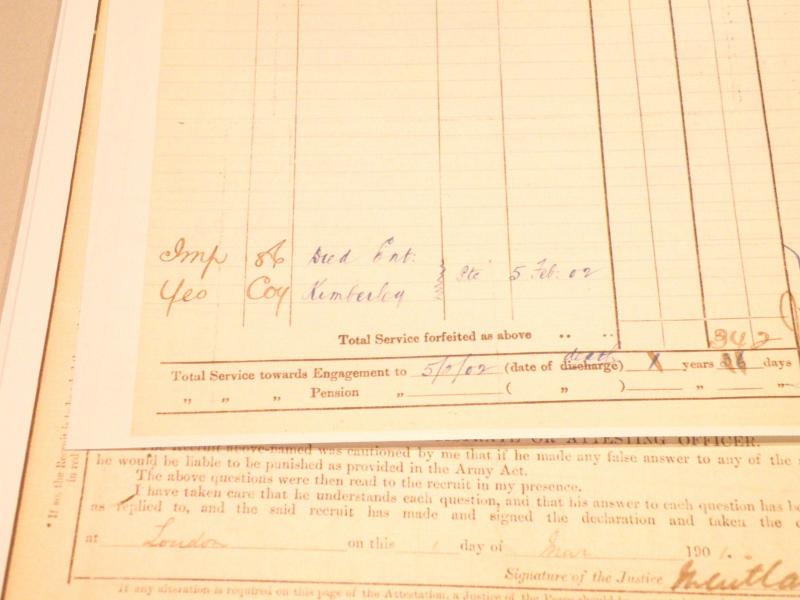 Imp Died Ent:
Yeo Coy Kimberley Pte 5 Feb: 02
342
Total Service forfeited as above .. ..
death
Total Service towards Engagement to 5/2/02 (date of discharge) years days
„ „ „ Pension „ ( „ ) „ „
ATTESTING OFFICER.
The Recruit above-named was cautioned by me that if he made any false answer to any of the
he would be liable to be punished as provided in the Army Act.
The above questions were then read to the recruit in my presence.
I have taken care that he understands each question, and that his answer to each question has
as replied to, and the said recruit has made and signed the declaration and taken the
at London on this 1 day of Mar 1901.
Signature of the Justice
If any alteration is required on this page of the Attestation, a Justice of the Peace should
* If so, the Recruit is to be